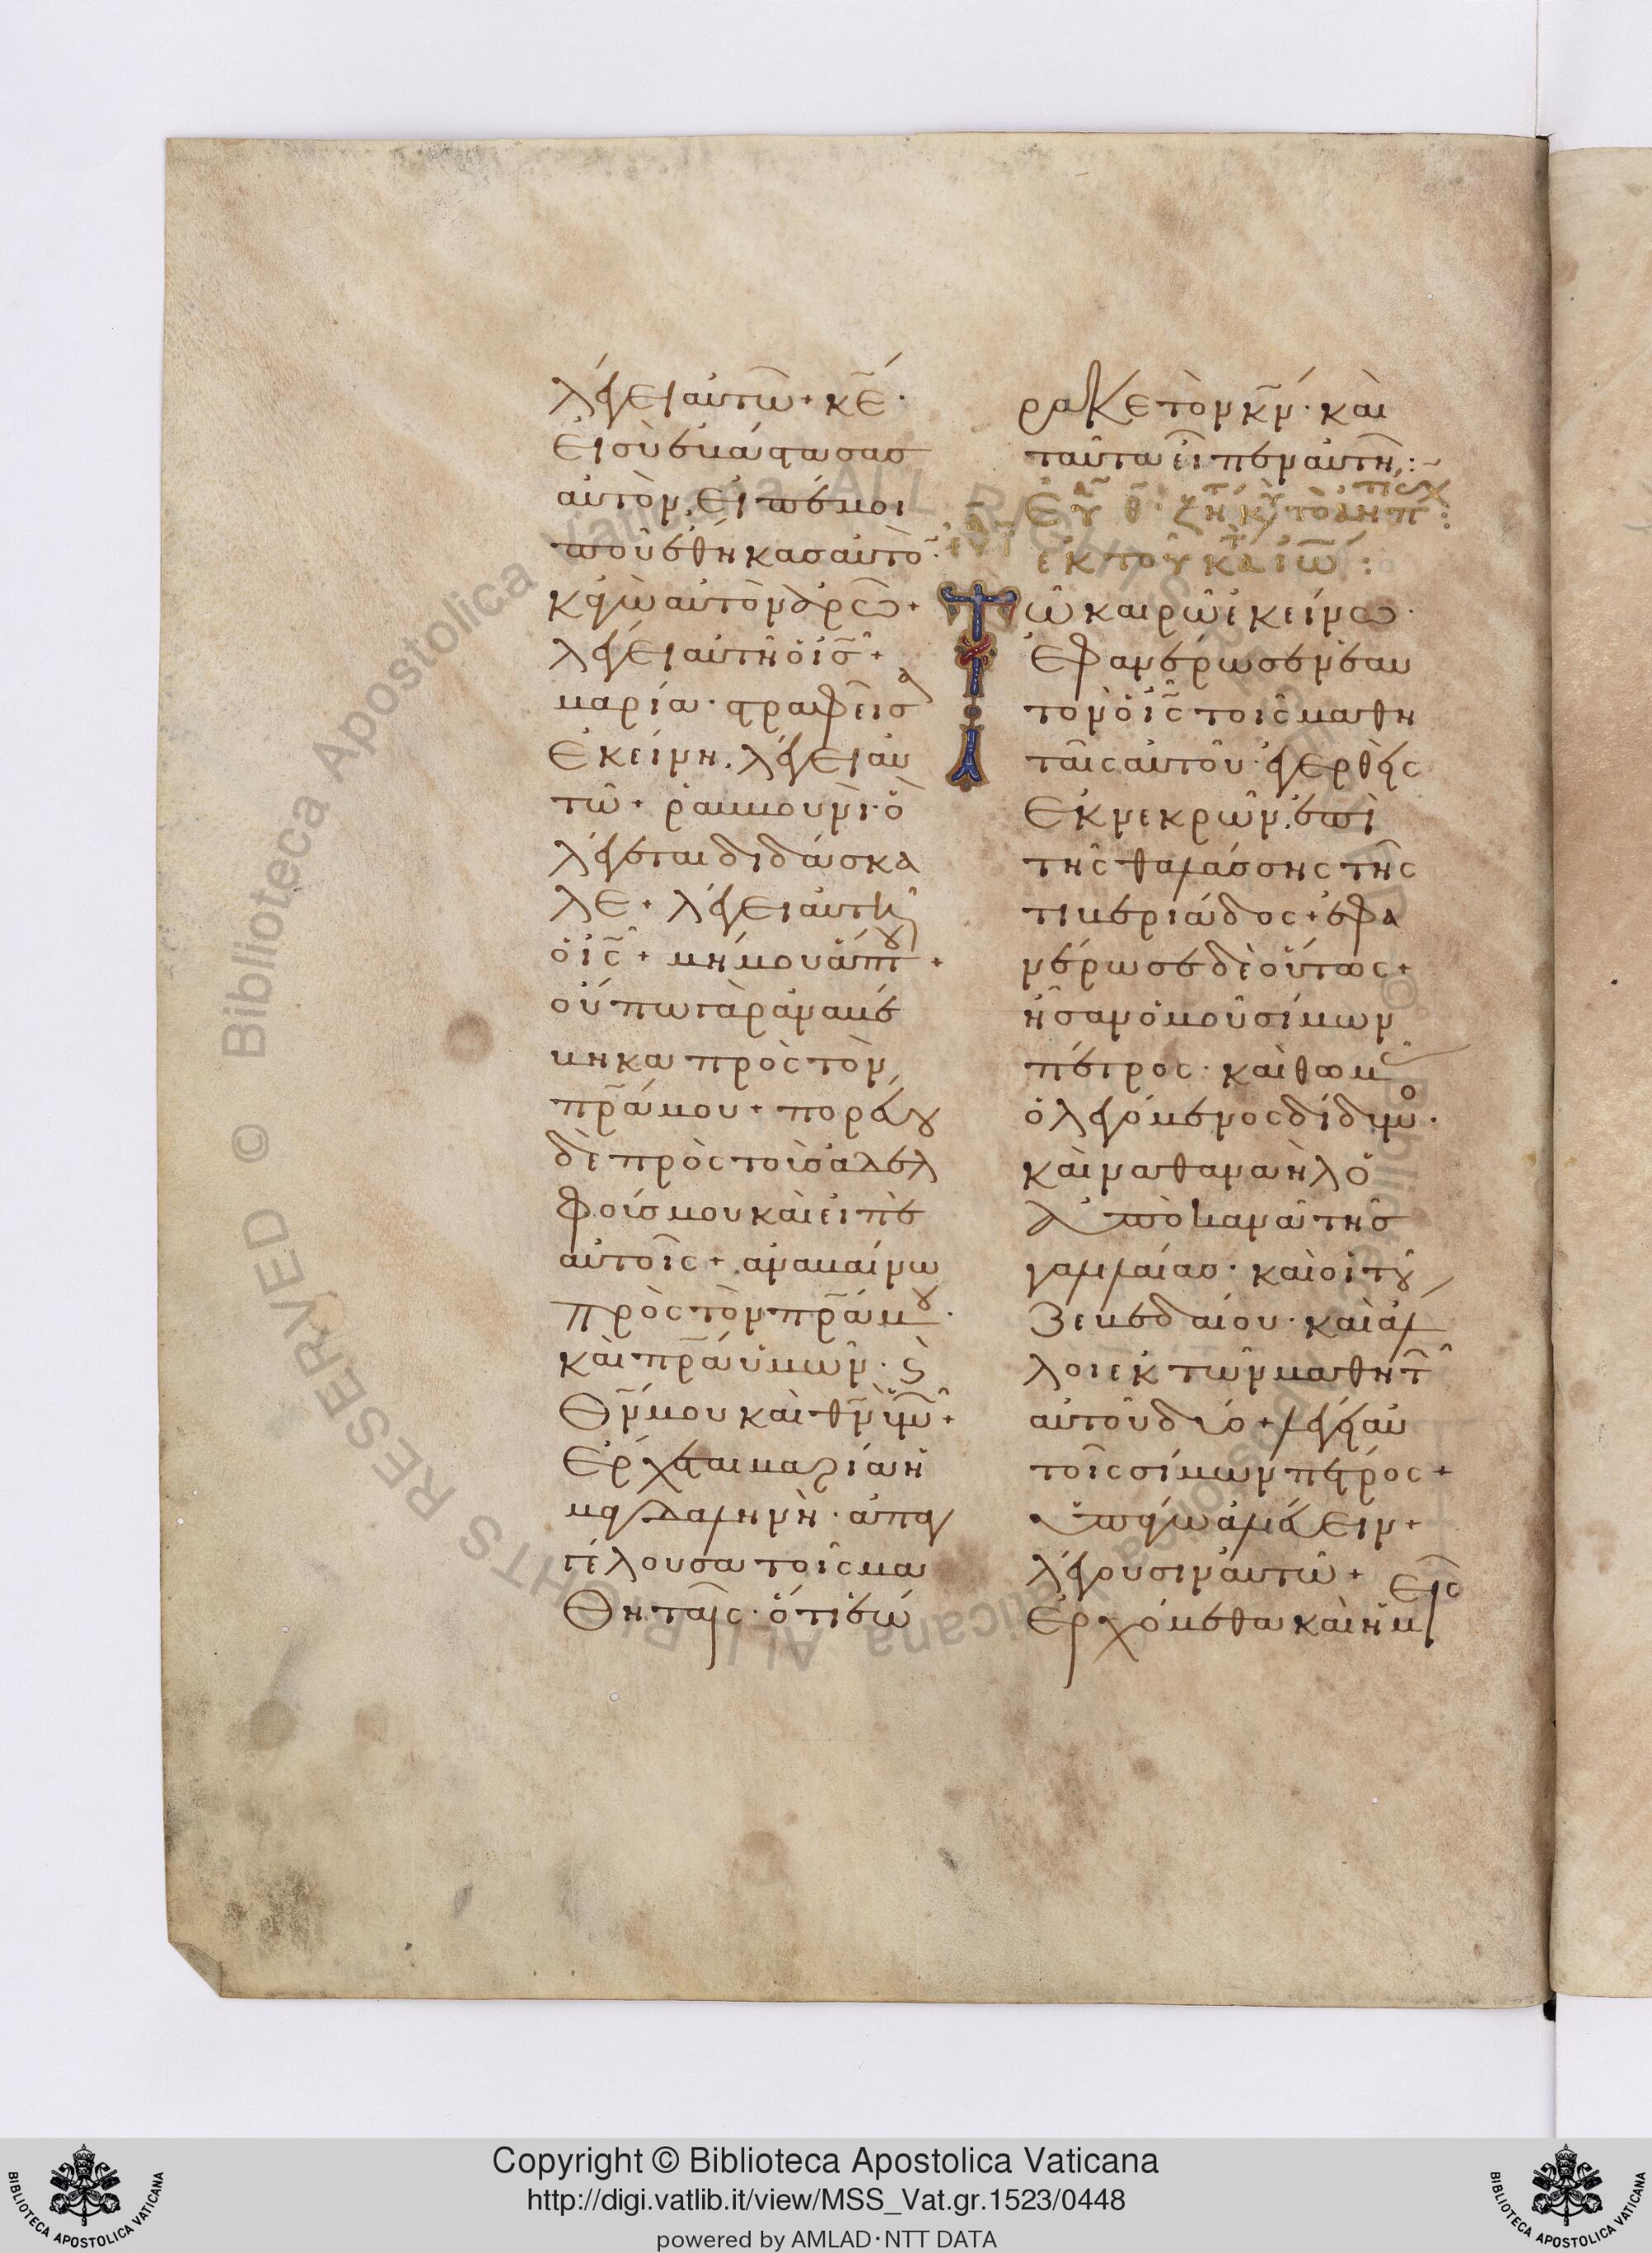 λέγει αὐτῶ + κ̅ε̅ ·
εἰ σὺ ἐβάστασας
αὐτὸν, εἰπέ μοι
ποῦ ἔθηκας αὐτό̅ ·
κἀγὼ αὐτὸν ἀρῶ +
λέγει αὐτῆ ὁ ι̅σ̅ +
μαρία · στραφεῖσα
ἐκείνη, λέγει αὐ
τῶ + ῥαββουνὶ · ὃ
λέγεται διδάσκα
λε + λέγει αὐτῆ
ὁ ι̅ς̅ + μή μου ἅπτου +
οὔπω γὰρ ἀναβέ
βηκα πρὸς τὸν
π̅ρ̅α μου + πορεύου
δὲ πρὸς τοὺς ἀδελ
φούς μου καὶ εἰπὲ
αὐτοῖς + ἀναβαίνω
πρὸς τὸν π̅ρ̅α μου ·
καὶ π̅ρ̅α ὑμῶν · ϛ
θ̅ν̅ μου καὶ θ̅ν̅ ὑμῶν +
ἔρχεται μαρία ἡ
μαγδαληνὴ · ἀπαγ
γέλουσα τοῖς μα
θηταῖς · ὅτι ἑώ
ρακε τὸν κ̅ν̅ · καὶ
ταῦτα εἶπεν αὐτῆ :
ἐκ τοῦ κατὰ ἰω̅ :
Τῶ καιρῶ ἐκείνω ·
ἐφανέρωσεν ἑαυ
τὸν ὁ ι̅ς̅ τοῖς μαθη
ταῖς αὐτοῦ · ἐγερθεὶς
ἐκ νεκρῶν, ἐπὶ
τῆς θαλάσσης τῆς
τιβεριάδος + ἐφα
νέρωσε δὲ οὕτως +
ἦσαν ὁμοῦ σίμων
πέτρος · καὶ θωμᾶς
ὁ λεγόμενος δίδυμος ·
καὶ ναθαναὴλ ὁ
ἀπὸ κανᾶ τῆς
γαλιλαίας · καὶ οἱ τοῦ
ζεβεδαίου · καὶ ἄλ
λοι ἐκ τῶν μαθητῶν
αὐτοῦ δύο + λέγει αὐ
τοῖς σίμων πέτρος +
ὑπάγω ἁλιεύειν +
λέγουσιν αὐτῶ +
ἐρχόμεθα καὶ ἡμεῖς
© Biblioteca Apostolica Vaticana ALL RIGHTS RESERVED
Copyright © Biblioteca Apostolica Vaticana
http://digi.vatlib.it/view/MSS_Vat.gr.1523/0448
powered by AMLAD·NTT DATA
BIBLIOTECA APOSTOLICA VATICANA
BIBLIOTECA APOSTOLICA VATICANA